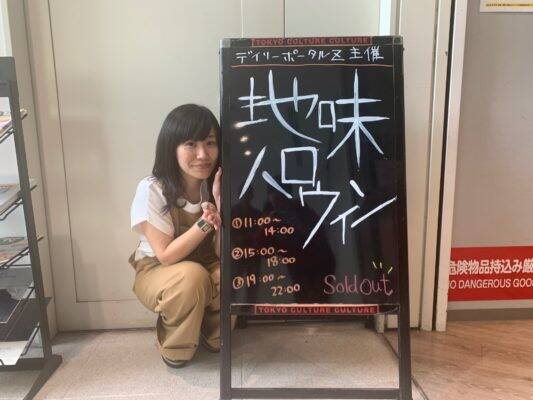 TOKYO CULTURE CULTURE
デイリーポータルZ 主催
地味
ハロウィン
①11:00〜
14:00
②15:00〜
18:00
③19:00〜
22:00
Sold out
TOKYO CULTURE CULTURE
危険物品持込み厳
NO DANGEROUS GOO